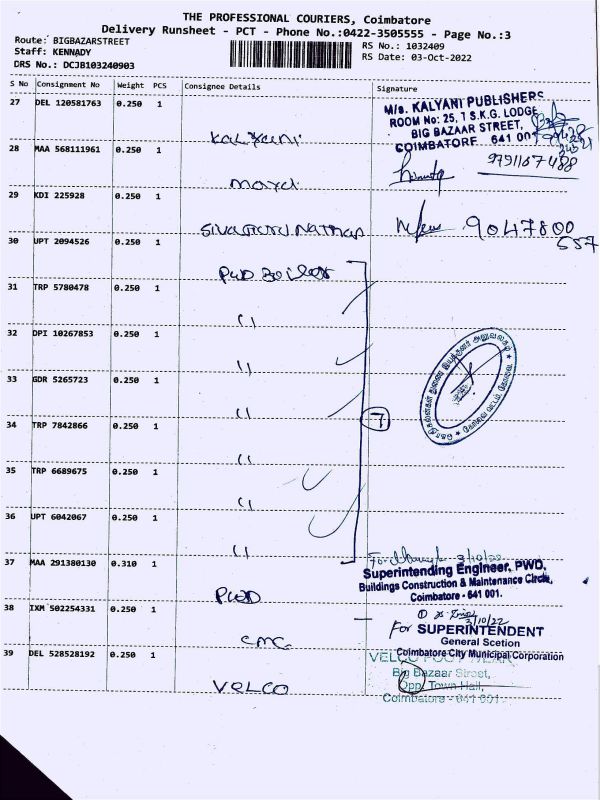 THE PROFESSIONAL COURIERS, Coimbatore
Delivery Runsheet - PCT - Phone No.:0422-3505555 - Page No.:3
Route: BIGBAZARSTREET
Staff: KENNADY
DRS No.: DCJB103240903
RS No.: 1032409
RS Date: 03-Oct-2022
S No Consignment No Weight PCS Consignee Details Signature
27 DEL 120581763 0.250 1
Kalyani
M/s. KALYANI PUBLISHERS
ROOM No: 25, 1 S.K.G. LODGE
BIG BAZAAR STREET,
COIMBATORE 641 001
28 MAA 568111961 0.250 1
9791167488
29 KDI 225928 0.250 1
9047800
557
30 UPT 2094526 0.250 1
PWD Boilers
31 TRP 5780478 0.250 1
11
32 DPI 10267853 0.250 1
11
33 GDR 5265723 0.250 1
11
7
34 TRP 7842866 0.250 1
11
35 TRP 6689675 0.250 1
11
36 UPT 6042067 0.250 1
11
37 MAA 291380130 0.310 1
PWD
3/10/22
Superintending Engineer, PWD,
Buildings Construction & Maintenance Circle,
Coimbatore - 641 001.
38 IXM 502254331 0.250 1
CMC
3/10/22
For SUPERINTENDENT
General Scetion
Coimbatore City Municipal Corporation
39 DEL 528528192 0.250 1
VELCO
VELCO
Big Bazaar Street,
Opp. Town Hall,
Coimbatore - 641 001.